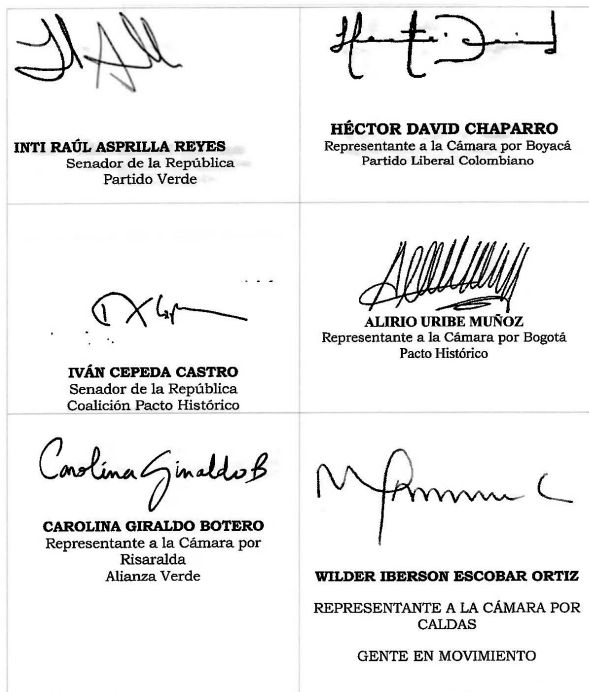 INTI RAÚL ASPRILLA REYES
Senador de la República
Partido Verde
HÉCTOR DAVID CHAPARRO
Representante a la Cámara por Boyacá
Partido Liberal Colombiano
IVÁN CEPEDA CASTRO
Senador de la República
Coalición Pacto Histórico
ALIRIO URIBE MUÑOZ
Representante a la Cámara por Bogotá
Pacto Histórico
Carolina Giraldo B
CAROLINA GIRALDO BOTERO
Representante a la Cámara por
Risaralda
Alianza Verde
WILDER IBERSON ESCOBAR ORTIZ
REPRESENTANTE A LA CÁMARA POR
CALDAS
GENTE EN MOVIMIENTO